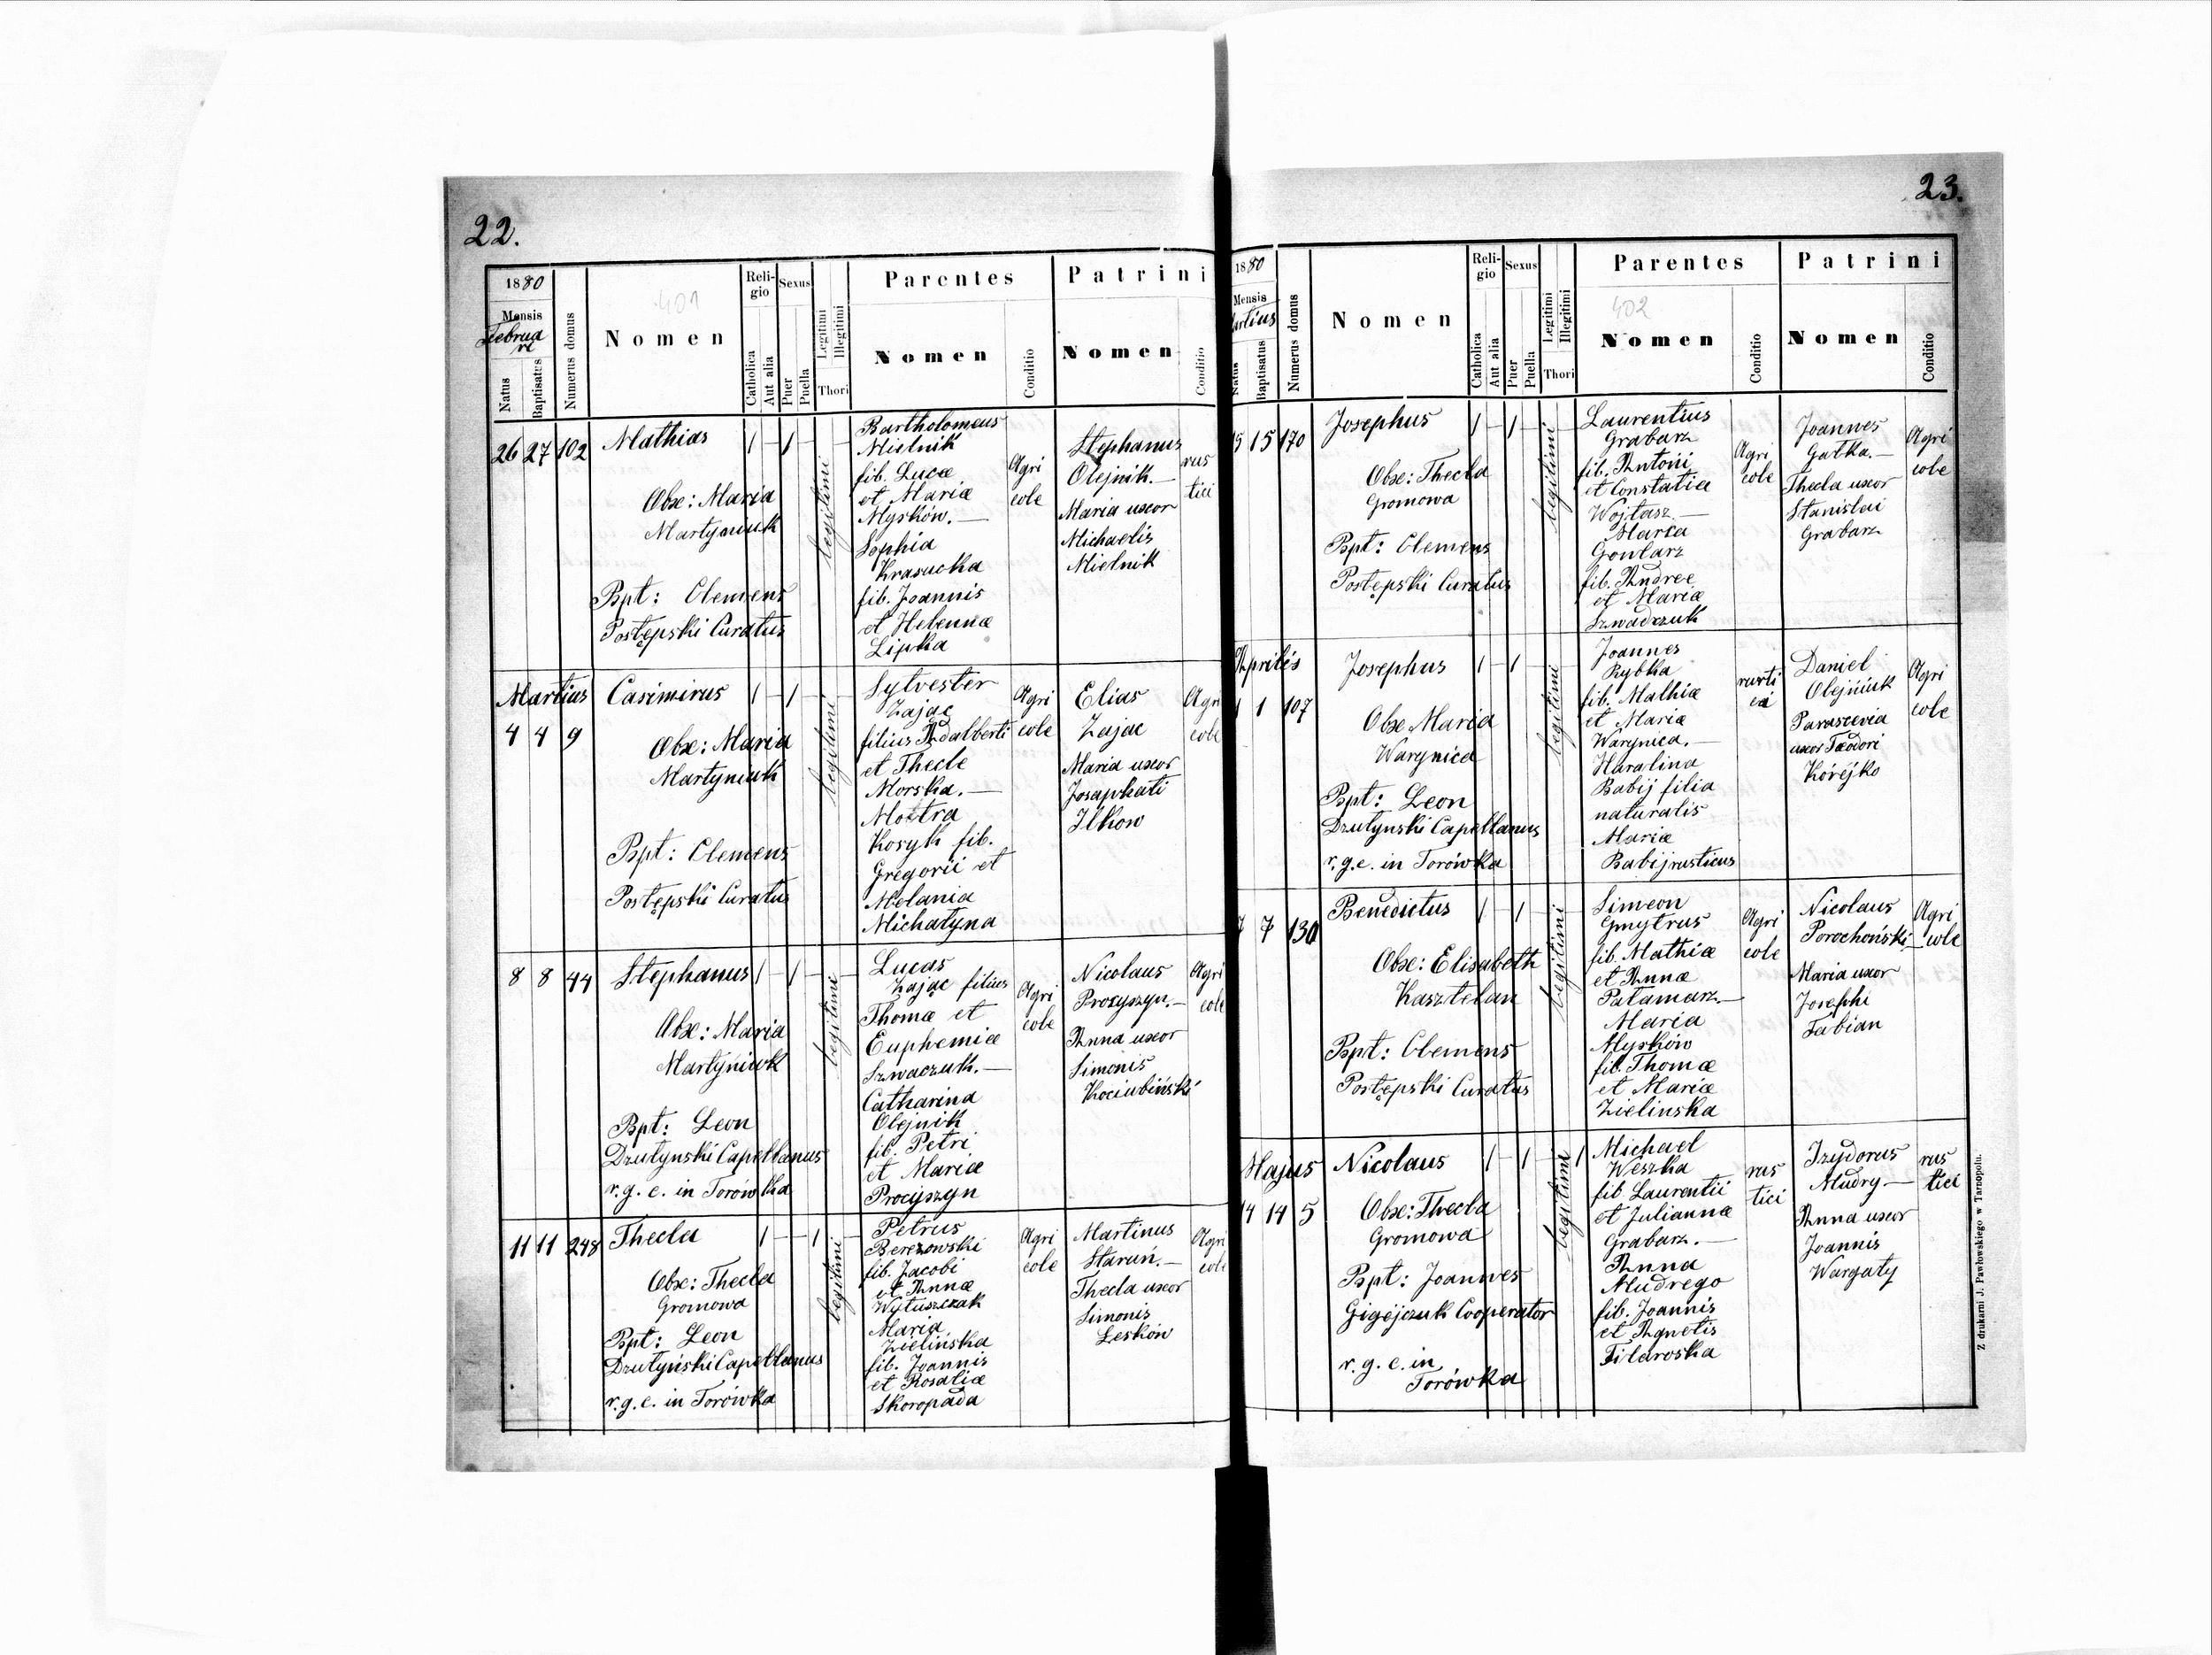 22.
1880
Mensis
Februa
ri
Natus
Baptisatus
Numerus domus
401
Nomen
Reli-
gio
Catholica
Aut alia
Sexus
Puer
Puella
Legitimi
Illegitimi
Thori
Parentes
Nomen
Conditio
Patrini
Nomen
Conditio
26 27 102
Mathias
Obse: Maria
Martyniuk
Bpt: Clemens
Postępski Curatus
legitimi
Bartholomeus
Mielnik
fil. Lucæ
et Mariæ
Mysków.—
Sophia
Krasucka
fil. Joannis
et Helennæ
Lipka
Agri
cole
Stephanus
Olejnik.—
Maria uxor
Michaelis
Mielnik
rus
tici
Martius
4 4 9
Casimirus
Obse: Maria
Martyniuk
Bpt: Clemens
Postępski Curatus
legitimi
Sylvester
Zając
filius Adalberti
et Thecle
Morska.—
Kosyk fil.
Gregorii et
Melania
Michatyna
Agri
cole
Elias
Zając
Maria uxor
Josaphati
Ilkow
Agri
cole
8 8 44
Stephanus
Obse: Maria
Martyniuk
Bpt: Leon
Dzułynski Capellanus
r.g.c. in Torówka
legitimi
Lucas
Zając filius
Thomæ et
Euphemiæ
Szwaczuk.—
Catharina
Olejnik
fil. Petri
et Mariæ
Procyszyn
Agri
cole
Nicolaus
Procyszyn.—
Anna uxor
Simonis
Kociubiński
Agri
cole
11 11 248
Thecla
Obse: Thecla
Gromowa
Bpt: Leon
Dzułyński Capellanus
r.g.c. in Torówka
legitimi
Petrus
Berezowski
fil. Jacobi
et Annæ
Wytuszczak
Maria
Zielińska
fil. Joannis
et Rosaliæ
Skoropada
Agri
cole
Martinus
Staruń.—
Thecla uxor
Simonis
Leskòw
Agri
cole
23.
1880
Mensis
Martius
Natus
Baptisatus
Numerus domus
Nomen
Reli-
gio
Catholica
Aut alia
Sexus
Puer
Puella
Legitimi
Illegitimi
Thori
Parentes
402
Nomen
Conditio
Patrini
Nomen
Conditio
15 15 170
Josephus
Obse: Thecla
Gromowa
Bpt: Clemens
Postępski Curatus
legitimi
Laurentius
Grabarz
fil. Antoni
et Constatia
Wojtasz.—
Maria
Gonlarz
fil. Andree
et Mariæ
Szwadczuk
Agri
cole
Joannes
Gatka.—
Thecla uxor
Stanislai
Grabarz
Agri
cole
Aprilis
1 1 107
Josephus
Obse Maria
Warynica
Bpt: Leon
Dzułynski Capellanus
r.g.c. in Torówka
legitimi
Joannes
Rybka
fil. Mathiæ
et Mariæ
Warynica.—
Haralina
Babij filia
naturalis
Mariæ
Babij rusticus
Daniel
Olejniuk
Parascevia
uxor Teodori
Kórejko
Agri
cole
7 7 130
Benedictus
Obse: Elisabeth
Kasztelan
Bpt: Clemens
Postępski Curatus
legitimi
Simeon
Gmytrus
fil. Mathiæ
et Annæ
Patamarz.—
Maria
Mysków
fil. Thomæ
et Mariæ
Zielinska
Agri
cole
Nicolaus
Porochoński.—
Maria uxor
Josephi
Fabian
Agri
cole
Majus
14 14 5
Nicolaus
Obse: Thecla
Gromowa
Bpt: Joannes
Gigejczuk Cooperator
r.g.c. in
Torówka
legitimi
Michael
Weszka
fil. Laurentii
et Juliannæ
Grabarz.—
Anna
Mudrego
fil. Joannis
et Agnetis
Filaroska
rus
tici
Izydorus
Mudry—
Anna uxor
Joannis
Wargaty
rus
tici
Z drukarni J. Pawłowskiego w Tarnopolu.